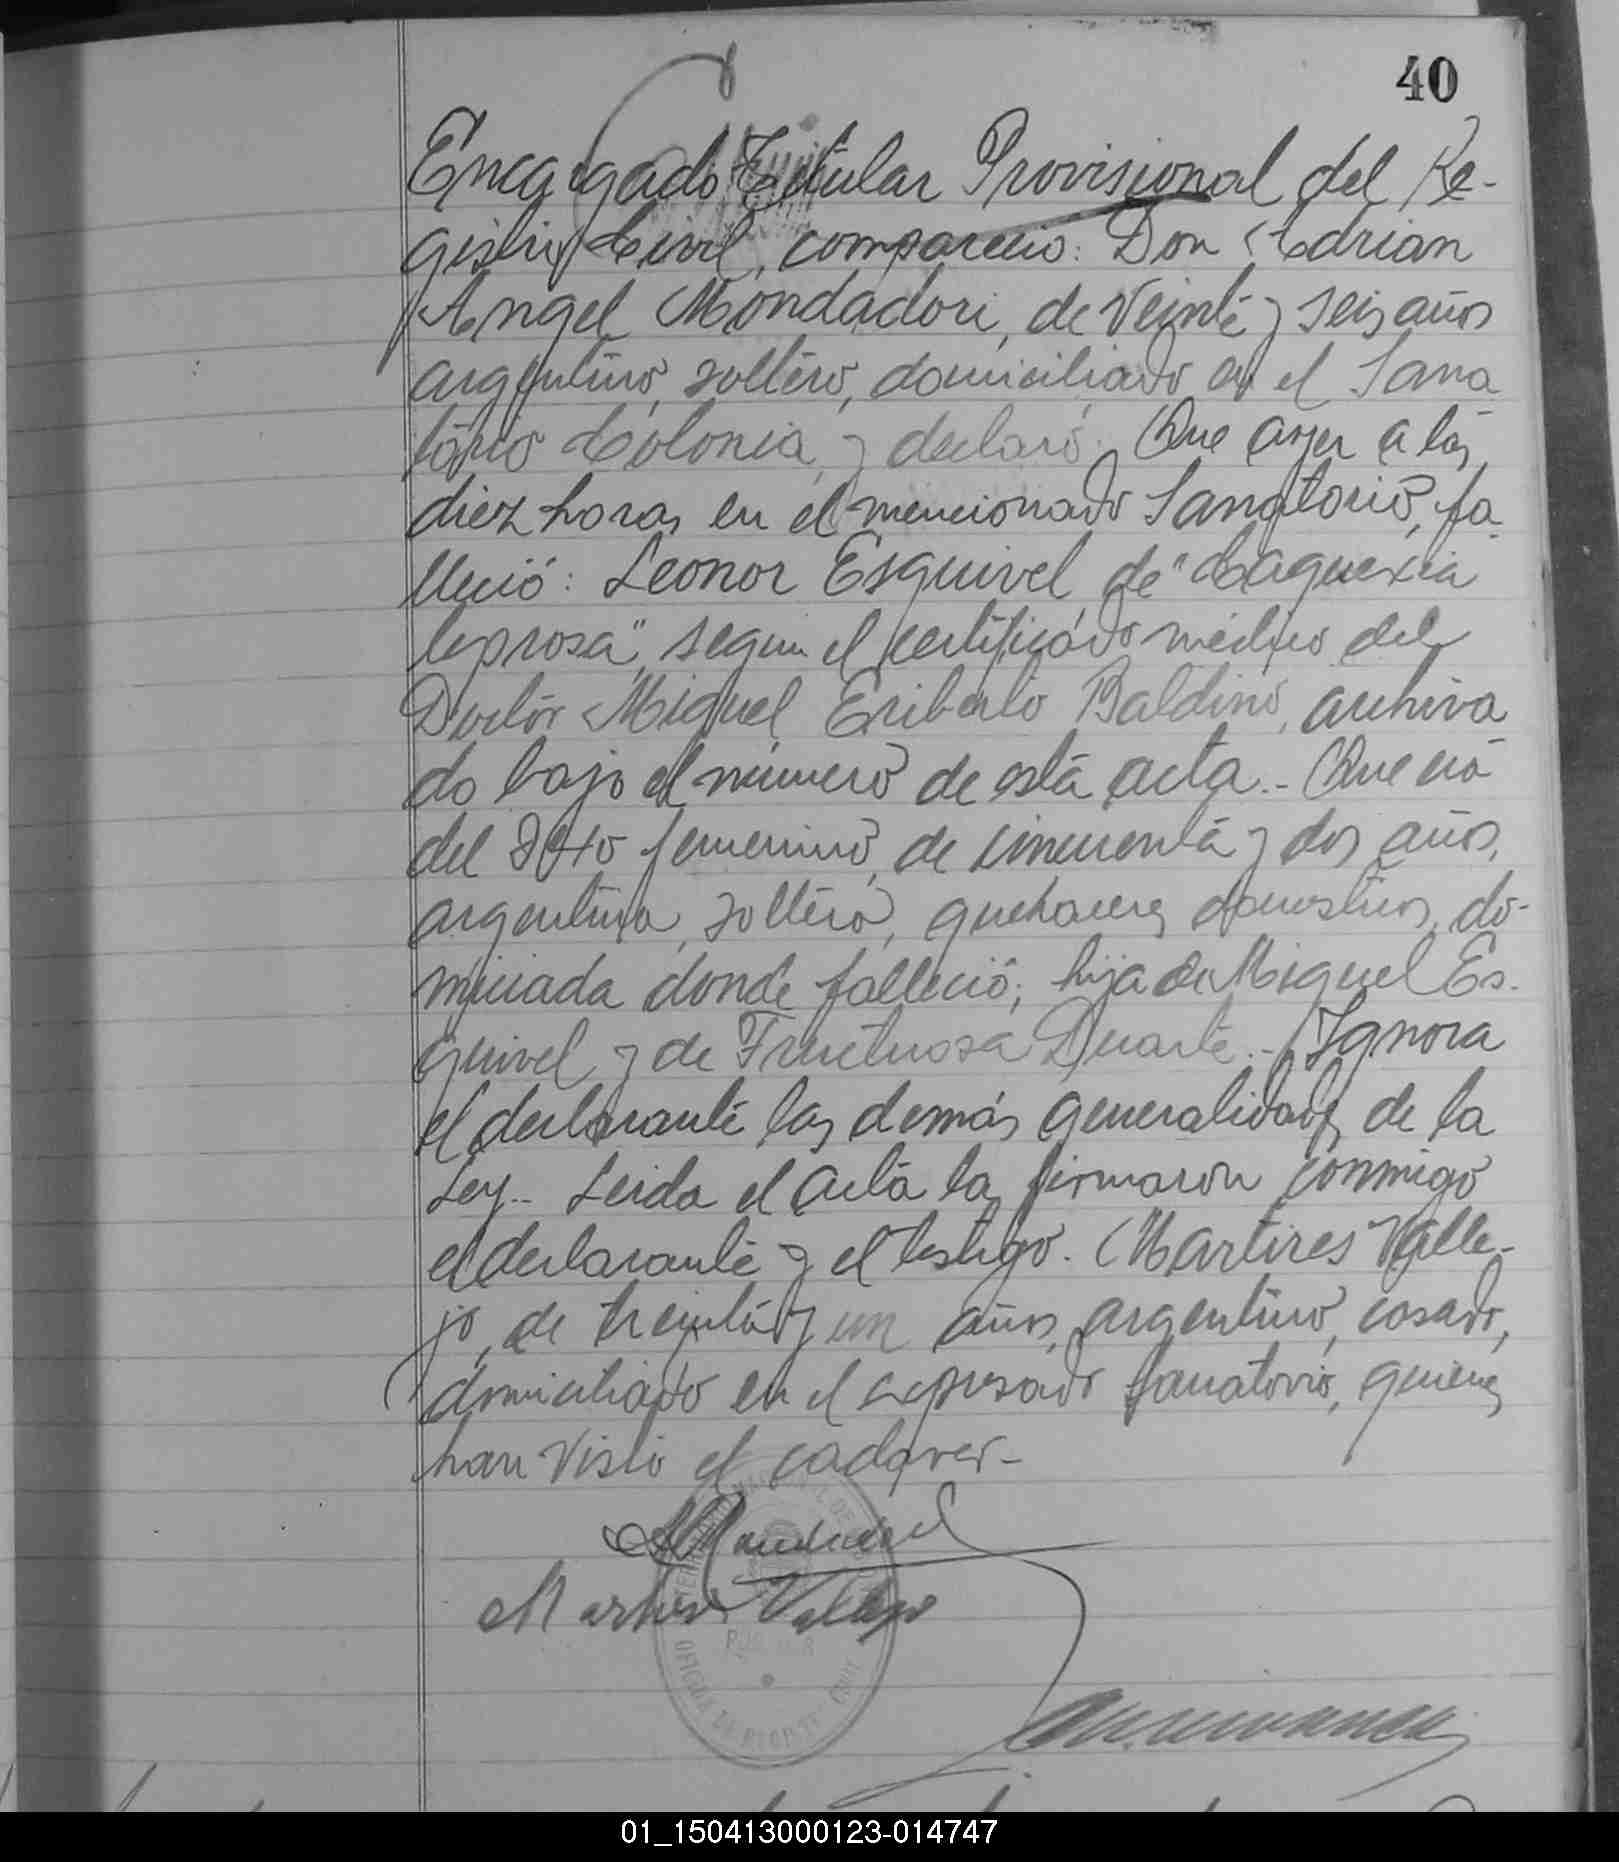 40
Encargado Titular Provisional del Re-
gistro Civil, compareció: Don Adrian
Angel Mondadori, de veinte y seis años
argentino, soltero, domiciliado en el Sana
torio Colonia, y declaró: Que ayer a las
diez horas en el mencionado Sanatorio, fa-
lleció: Leonor Esquivel, de "Caquexia
leprosa", según el certificado médico del
Doctor Miguel Eriberto Baldino, archiva
do bajo el número de esta acta.- Que era
del sexo femenino, de cincuenta y dos años,
argentina, soltera, quehaceres domesticos, do-
miciada donde falleció; hija de Miguel Es-
quivel y de Fructuosa Duarte.- Ignora
el declarante las demás generalidades de la
Ley.- Leida el acta la firmaron conmigo
el declarante y el testigo. Martires Valle-
jo, de treinta y un años, argentino, casado,
domiciliado en el expresado Sanatorio, quienes
han visto el cadaver-
Martires Vallejo
OFICINA
01_150413000123-014747